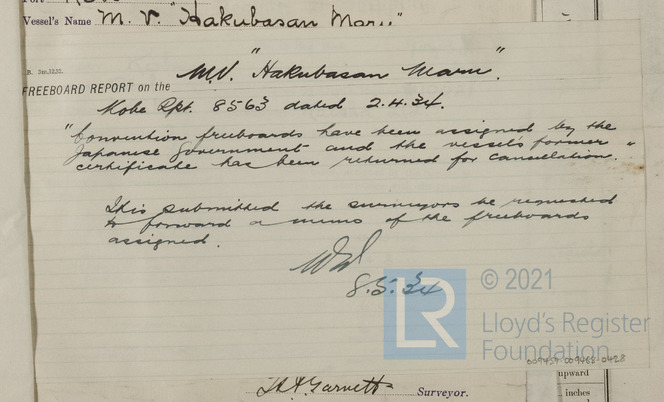 Vessel's Name M. V. "Hakubasan Maru"
B. 5m.12.30.
FREEBOARD REPORT on the M.V. "Hakubasan Maru".
Kobe Rpt. 8563 dated 2.4.34.
"Convention freeboards have been assigned by the
Japanese Government and the vessel's former
certificate has been returned for cancellation."
It is submitted the surveyors be requested
to forward a memo of the freeboards
assigned.
8.5.34
LR
© 2021
Lloyd's Register
Foundation
Garnett Surveyor.
upward
inches